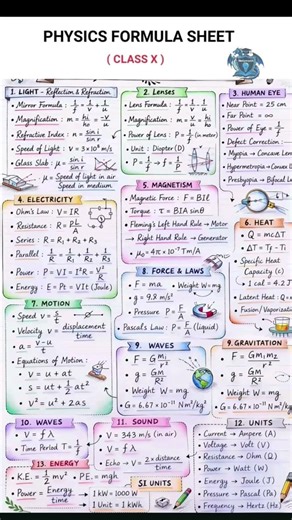 PHYSICS FORMULA SHEET
( CLASS X )
1. LIGHT - Reflection & Refraction
• Mirror Formula : 1/f = 1/v + 1/u
• Magnification : m = hi/ho = -v/u
• Refractive Index : n = sin i/sin r
• Speed of Light : V = 3×10⁸ m/s
• Glass Slab : μ = sin i/sin r
μ = Speed of light in air/Speed in medium
2. Lenses
• Lens Formula : 1/f = 1/v - 1/u
• Magnification : m = hi/ho = v/u
• Power of Lens : P = 1/f (in meter)
• Unit : Diopter (D)
• P = 1/f → f = 1/P
3. HUMAN EYE
• Near Point = 25 cm
• Far Point = ∞
• Power of Eye = 1/f
• Defect Correction :
• Myopia → Concave Len
• Hypermetropia → Convex L
• Presbyopia → Bifocal L
4. ELECTRICITY
• Ohm's Law : V = IR
• Resistance : R = ρL/A
• Series : R = R₁ + R₂ + R₃
• Parallel : 1/R = 1/R₁ + 1/R₂ + 1/R₃
• Power : P = VI = I²R = V²/R
• Energy : E = Pt = VIt (Joule)
5. MAGNETISM
• Magnetic Force : F = BIℓ
• Torque : τ = BIA sinθ
• Fleming's Left Hand Rule → Motor
→ Right Hand Rule → Generator
• μ₀ = 4π × 10⁻⁷ Tm/A
6. HEAT
• Q = mcΔT
• ΔT = Tf - Ti
Specific Heat
Capacity (c)
• 1 cal = 4.2 J
• Latent Heat : Q =
Fusion/Vaporizat
7. MOTION
• Speed v = s/t
• Velocity v = displacement/time
• a = v-u/t
• Equations of Motion :
• v = u + at
• s = ut + 1/2 at²
• v² = u² + 2as
8. FORCE & LAWS
• F = ma • Weight W = mg
• g = 9.8 m/s²
• Pressure P = F/A
• Pascal's Law : P = F/A (liquid)
9. WAVES
• F = G Mm₁/r²
• g = GM/R²
• Weight W = mg
• G = 6.67 × 10⁻¹¹ N m²/kg²
9. GRAVITATION
• F = G M₁ m₂/r²
• g = GM/R²
• Weight : W = mg
• G = 6.67 × 10⁻¹¹ N m²/
10. WAVES
• V = f λ
• Time Period T = 1/f
11. SOUND
• V = 343 m/s (in air)
• V = f λ
• Echo → V = 2×distance/time
12. UNITS
• Current → Ampere (A)
• Voltage → Volt (V)
• Resistance → Ohm (Ω)
• Power → Watt (W)
• Energy → Joule (J)
• Pressure → Pascal (Pa)
• Frequency → Hertz (Hz)
13. ENERGY
• K.E. = 1/2 mv² • PE. = mgh
• Power = Energy/time
SI UNITS
1 kW = 1000 W
1 Unit = 1 kWh